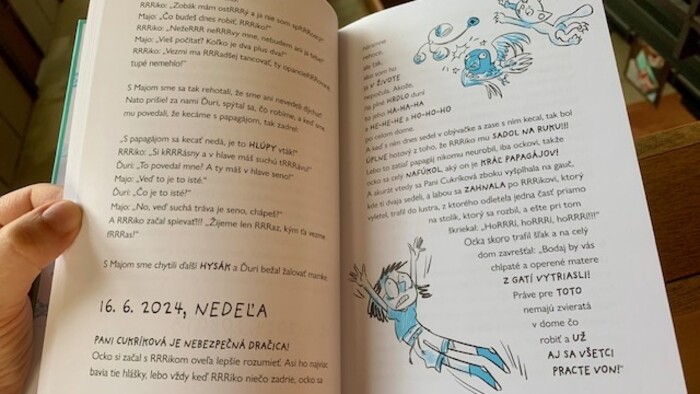 RRRiko: „Zobák mám ostRRRý a ja nie som
Majo: „Čo budeš dnes robiť, RRRiko?"
RRRiko: „NežeRRR neRRRvy mne, nebudem ani ja tebe!"
Majo: „Vieš počítať? Koľko je dva plus dva?"
RRRiko: „Vezmi ma RRRadšej tancovať, ty
tupé nemehlo!"
S Majom sme sa tak rehotali, že sme ani nevedeli dýchať.
Nato prišiel za nami Ďuri, spýtal sa, čo robíme, a keď sme
mu povedali, že kecáme s papagájom, tak zadrel:
„S papagájom sa kecať nedá, je to HLÚPY vták!"
RRRiko: „Si kRRRásny a v hlave máš suchú tRRRávu!"
Ďuri: „To povedal mne? A ty máš v hlave seno!"
Majo: „Veď to je to isté."
Ďuri: „Čo je to isté?"
Majo: „No, veď suchá tráva je seno, chápeš?"
A RRRiko začal spievať?!! „Žijeme len RRRaz, kým ťa vezme
ďRRRas!"
S Majom sme chytili ďalší HYSÁK a Ďuri bežal žalovať mamke.
16. 6. 2024, NEDEĽA
PANI CUKRÍKOVÁ JE NEBEZPEČNÁ DRAČICA!
Ocko si začal s RRRikom oveľa lepšie rozumieť. Asi ho najviac
bavia tie hlášky, lebo vždy keď RRRiko niečo zadrie, ocko sa
náramne
rehoce,
ale tak,
ako som ho
V ŽIVOTE
nepočula. Akože,
na plné HRDLO duní
to jeho HA-HA-HA
a HE-HE-HE a HO-HO-HO
po celom dome.
A keď s ním dnes sedel v obývačke a zase s ním kecal, tak bol
ÚPLNE hotový z toho, že RRRiko mu SADOL NA RUKU!!!
Lebo to zatiaľ papagáj nikomu neurobil, iba ockovi, takže
ocko sa celý NAFÚKOL, aký on je KRÁĽ PAPAGÁJOV!
A akurát vtedy sa Pani Cukríková zboku vyšplhala na gauč,
kde tí dvaja sedeli, a labou sa ZAHNALA po RRRikovi, ktorý
vyletel, trafil do lustra, z ktorého odletela jedna časť priamo
na stolík, ktorý sa rozbil, a ešte pri tom
škriekal: „HoRRRí, hoRRRí, hoRRRí!!!"
Ocka skoro trafil šľak a na celý
dom zavreštal: „Bodaj by vás
chlpaté a operené matere
Z GATÍ VYTRIASLI!
Práve pre TOTO
nemajú zvieratá
v dome čo
robiť a UŽ
AJ SA VŠETCI
PRACTE VON!"